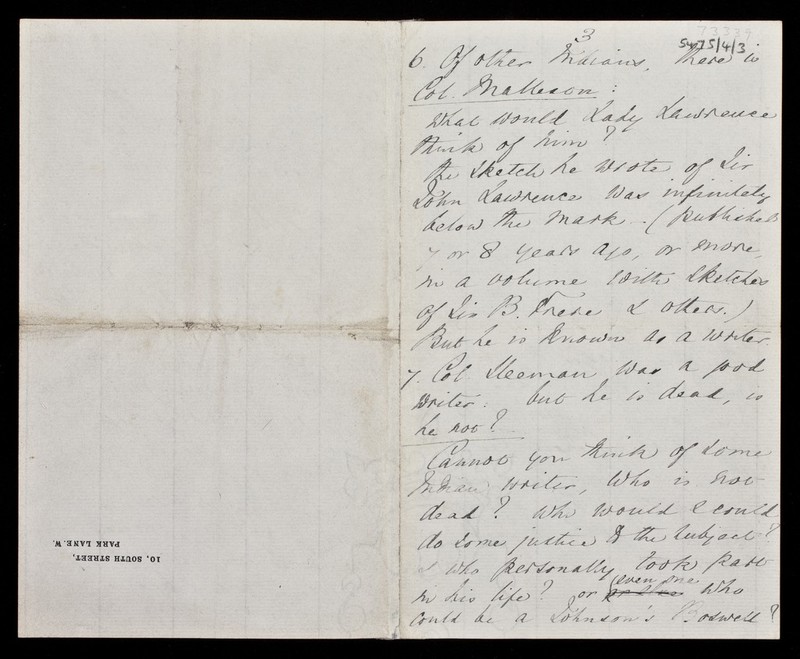 3
73339
5475/4/3
6. Of other Indians, there is
Col. Malleson:
What would Lady Lawrence
think of him?
the Sketch he wrote of Sir
John Lawrence was infinitely
below the mark - (published
7 or 8 years ago, or more,
in a volume with Sketches
of Sir B. Frere & others.)
But he is known as a writer.
7. Col Sleeman was a good
writer: but he is dead, is
he not?
Cannot you think of some
Indian writer, who is not
dead? who would & could
do some justice to the subject?
& who personally took part
in his life? or (even one who
could be a Johnson's Boswell?
10, SOUTH STREET,
PARK LANE. W.